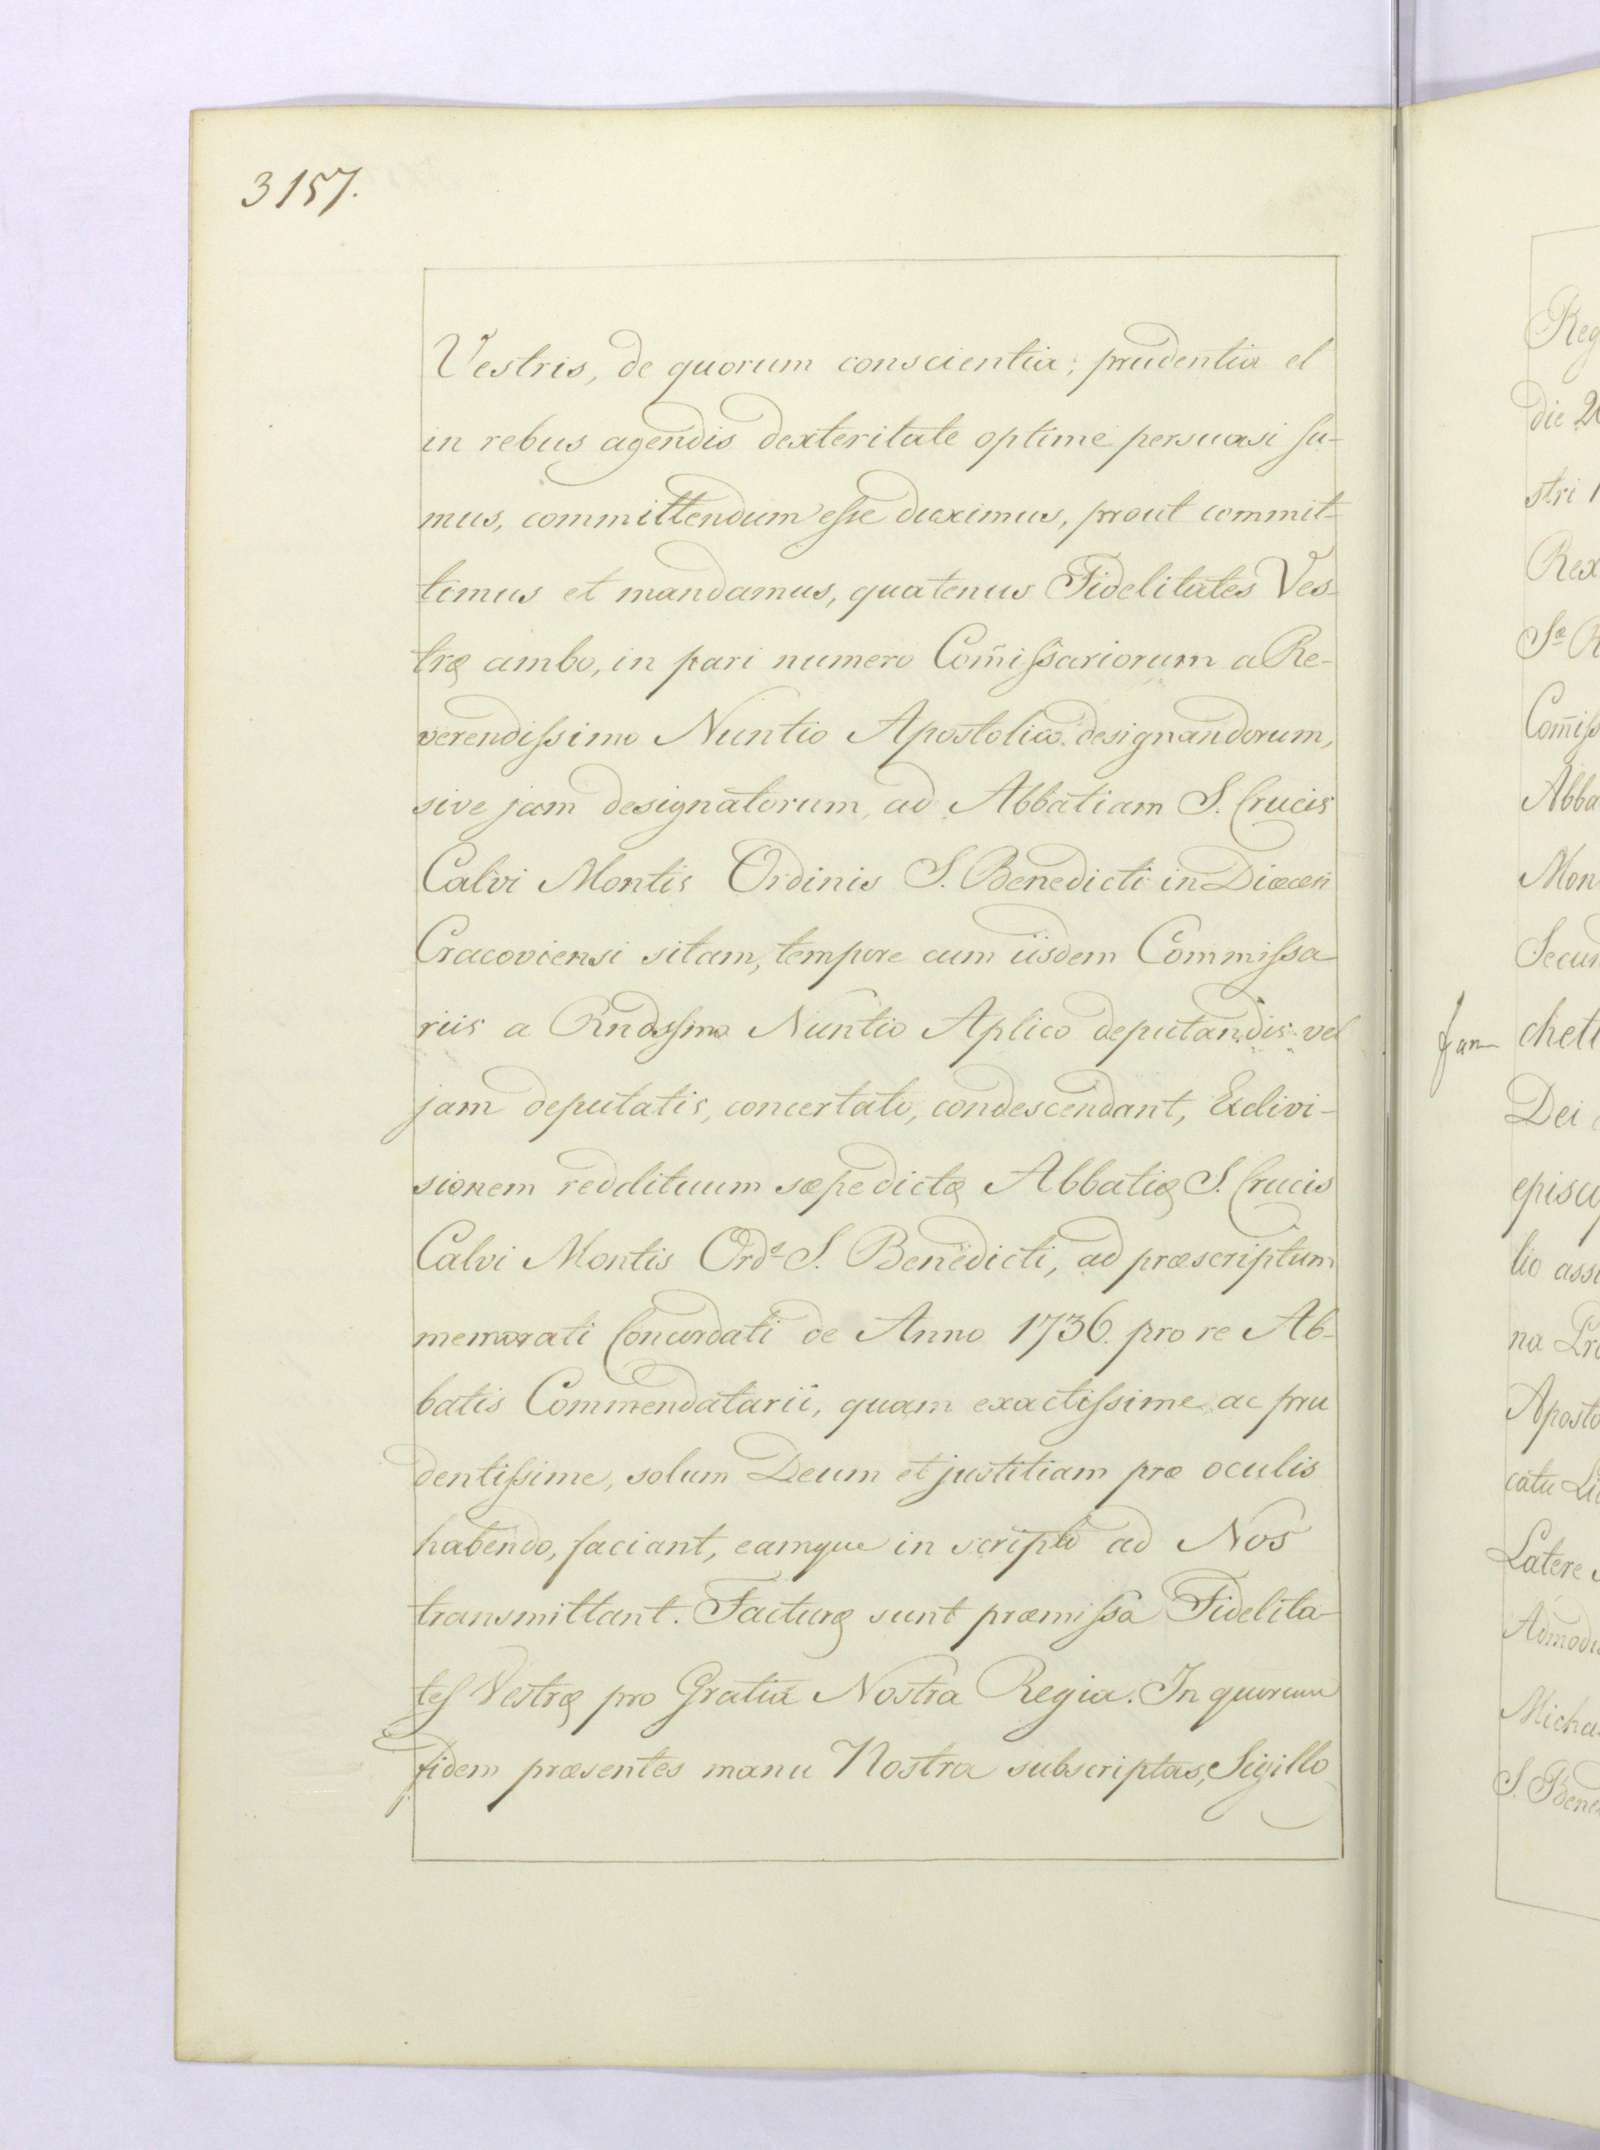 3157.
Vestris, de quorum conscientia; prudentia et
in rebus agendis dexteritate optime persuasi su-
mus, committendum esse duximus, prout commit-
timus et mandamus, quatenus Fidelitates Ves-
træ ambo, in pari numero Com̃issariorum a Re-
verendissimo Nuntio Apostolico designandorum,
sive jam designatorum, ad Abbatiam S. Crucis
Calvi Montis Ordinis S. Benedicti in Diœcesi
Cracoviensi sitam, tempore cum iisdem Commissa
riis a Rndssmo Nuntio Aplico deputandis vel
jam deputatis, concertato, condescendant, & divi-
sionem reddituum sæpedictæ Abbatiæ S. Crucis
Calvi Montis Ords S. Benedicti, ad præscriptum
memorati Concordati de Anno 1736. pro re Ab-
batis Commendatarii, quam exactissime ac pru
dentissime, solum Deum et justitiam præ oculis
habendo, faciant, eamque in scripto ad Nos
transmittant. Facturæ sunt præmissa Fidelita-
tes Vestræ pro Gratia Nostra Regia. In quorum
fidem præsentes manu Nostra subscriptas, Sigillo
Reg
die 2
stri
Rex
Sæ R
Com̃iss
Abba
Mon
Secun
fan cheti
Dei
episcop
lio assi
na Pro
Aposto
catu Li
Latere
Admodu
Micha
S. Bene